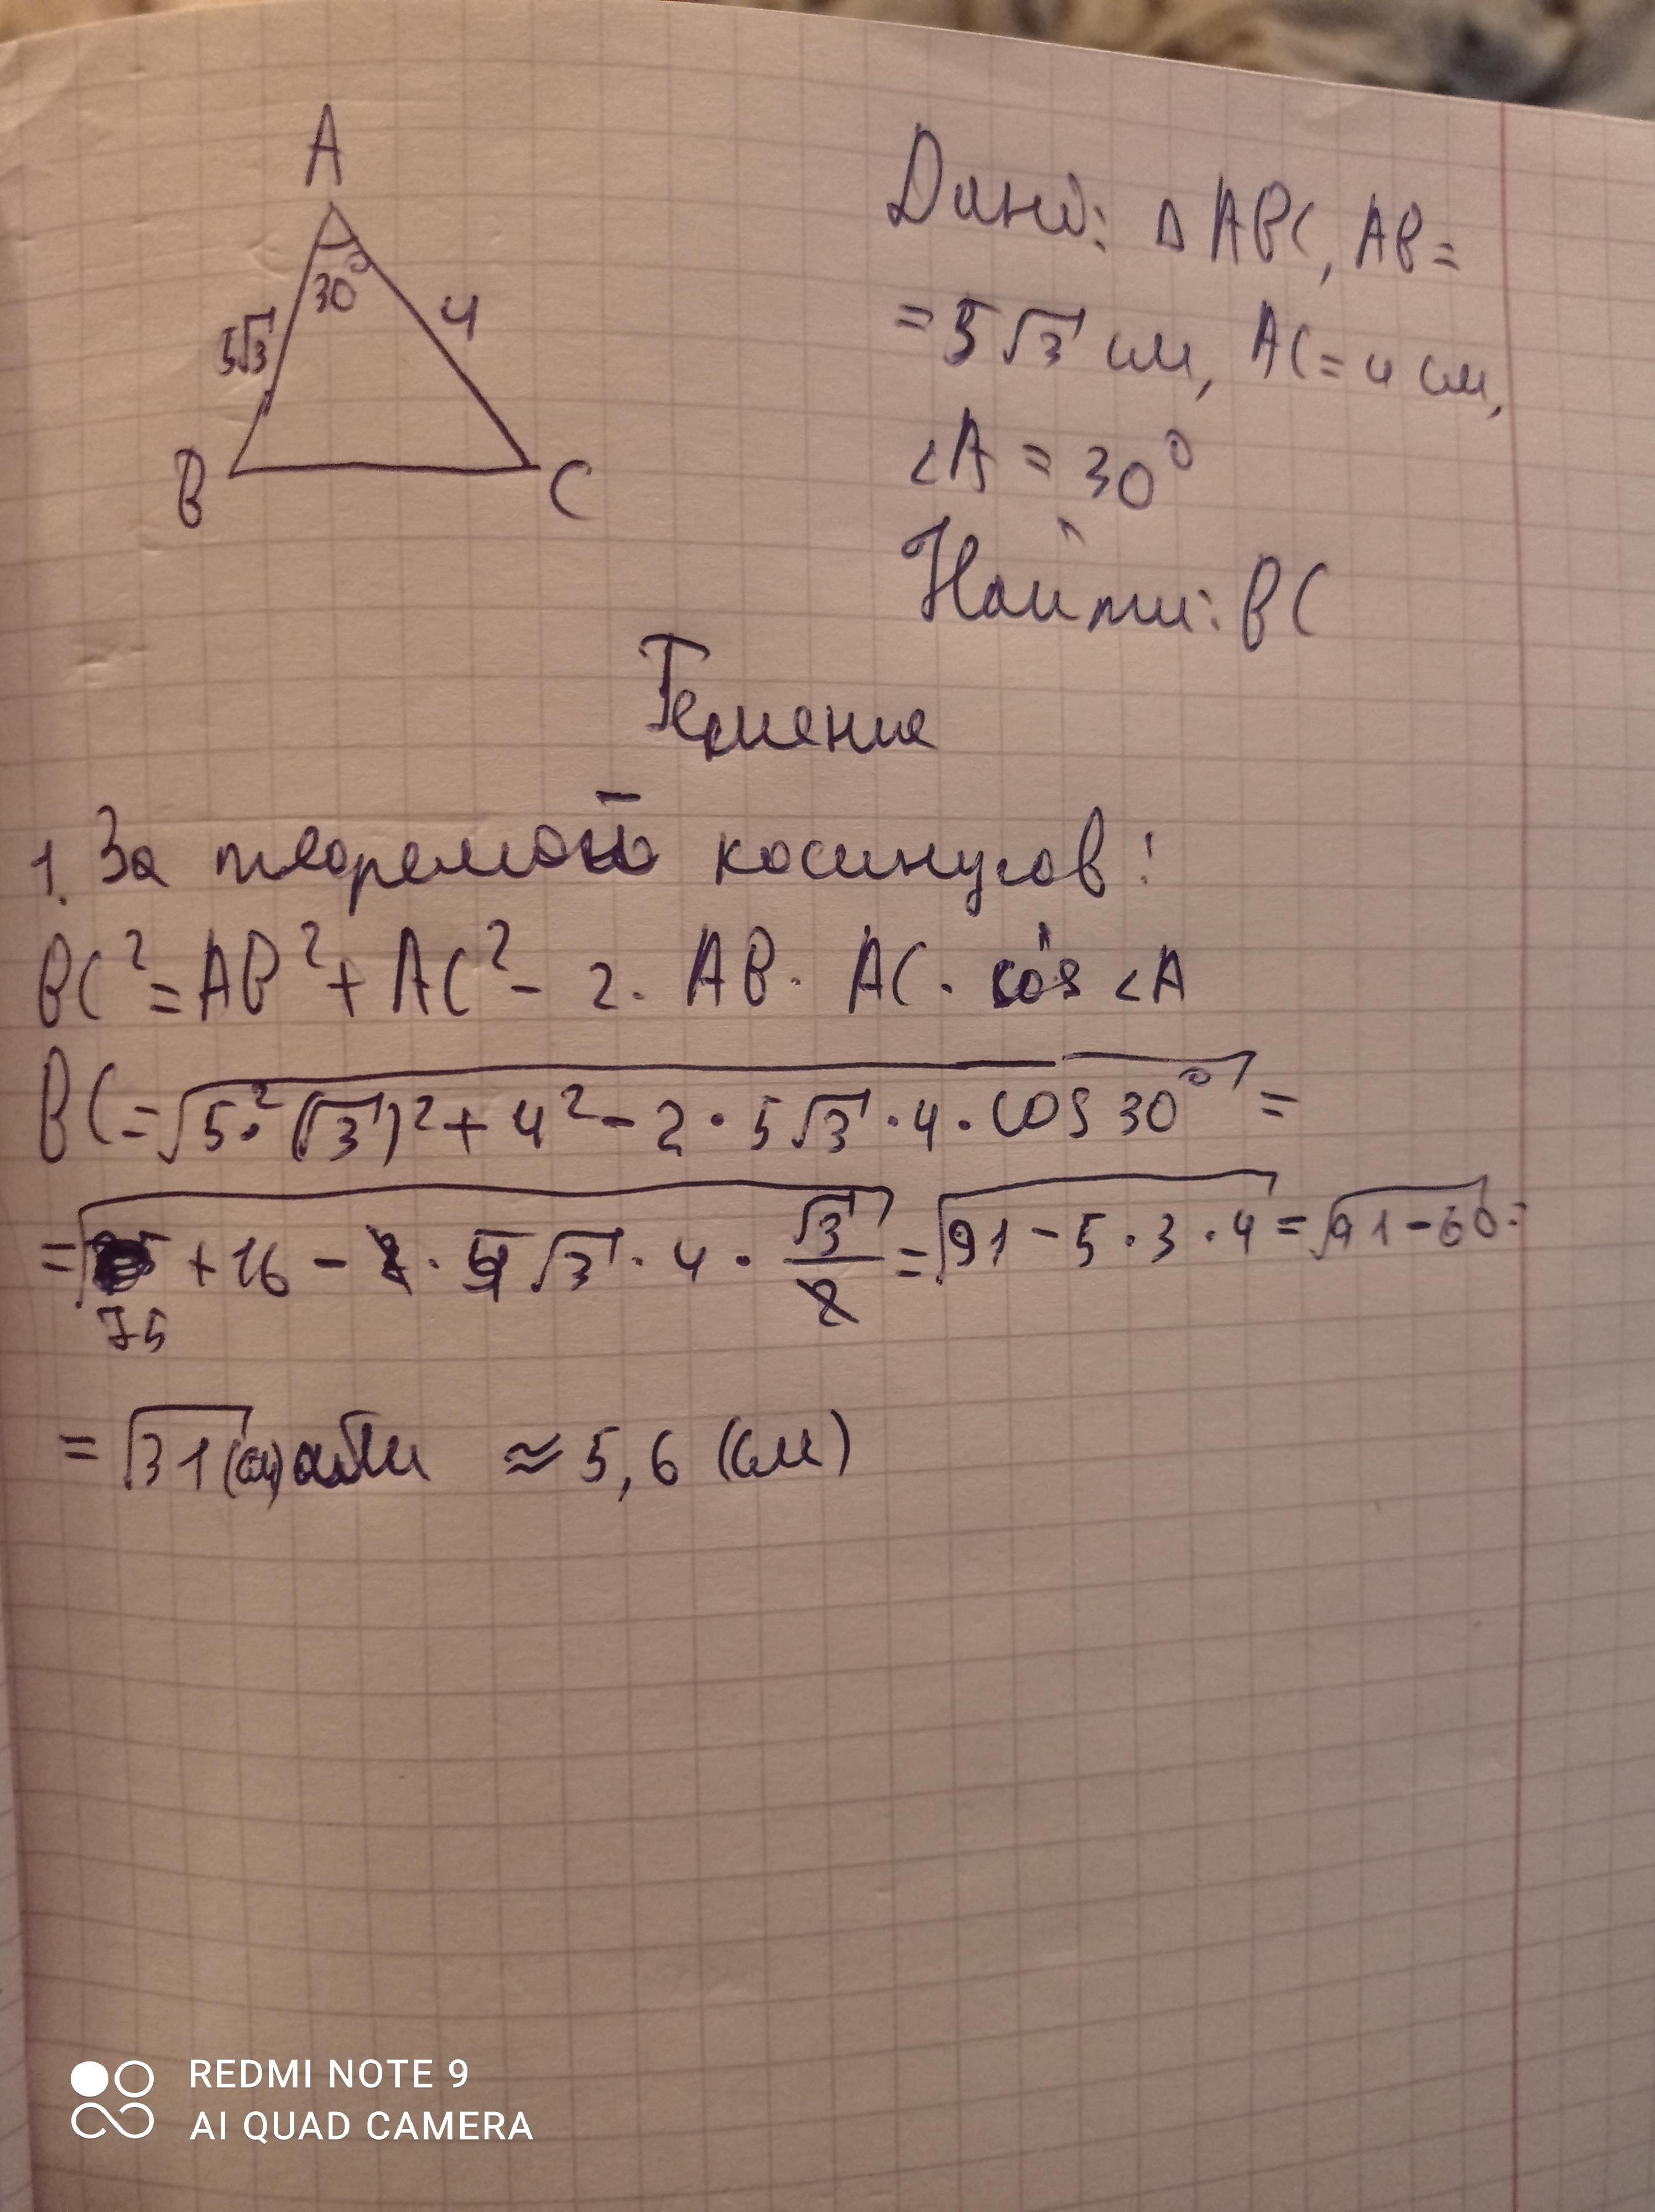 A
30°
5√3
4
B
C
Дано: Δ ABC, AB =
= 5√3 см, AC = 4 см,
∠A = 30°
Найти: BC
Решение
1. За теоремой косинусов:
BC² = AB² + AC² - 2 · AB · AC · cos ∠A
BC = √(5² · (√3)² + 4² - 2 · 5√3 · 4 · cos 30°) =
= √(75 + 16 - 2 · 5√3 · 4 · √3/2) = √(91 - 5 · 3 · 4) = √(91 - 60) =
= √31 (см) або ≈ 5,6 (см)
REDMI NOTE 9
AI QUAD CAMERA